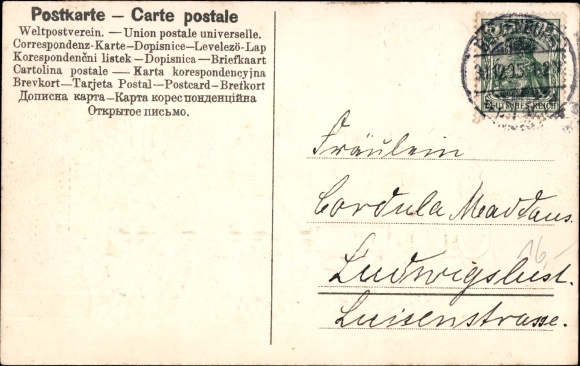 Postkarte – Carte postale
Weltpostverein. — Union postale universelle.
Correspondenz-Karte – Dopisnice – Levelező-Lap
Korespondenčni listek – Dopisnica – Briefkaart
Cartolina postale — Karta korespondencyjna
Brevkort – Tarjeta Postal – Postcard – Brefkort
Дописна карта – Карта кореспонденційна
Открытое письмо.
DEUTSCHES REICH
Fräulein
Cordula Maddaus.
16
Ludwigslust.
Luisenstrasse.